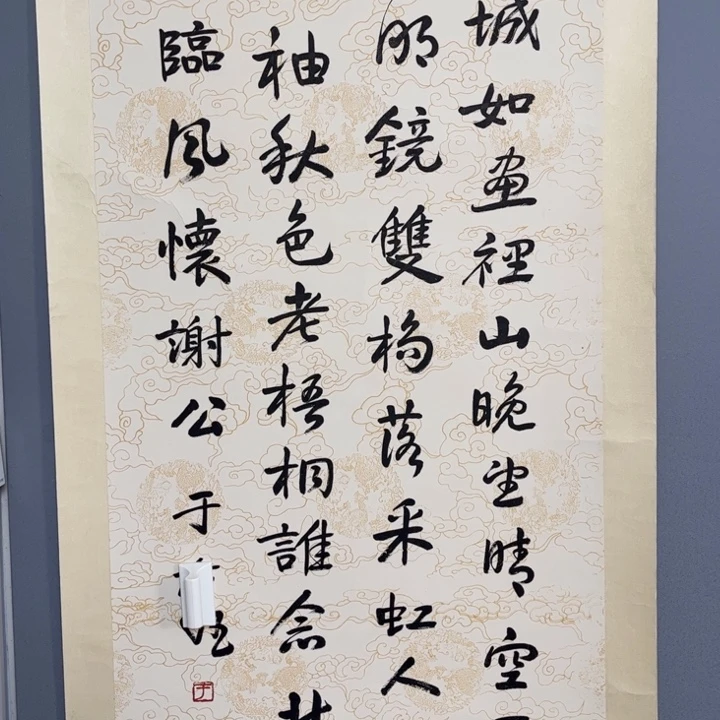 城如畫裡山晚望晴空
明鏡雙橋落采虹人
袖秋色老梧桐誰念
臨風懷謝公 于